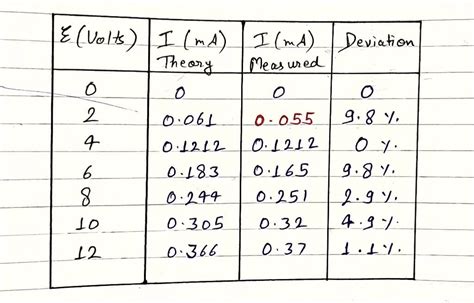 ε (Volts) I (mA) Theory I (mA) Measured Deviation
0 0 0 0
2 0.061 0.055 9.8 %.
4 0.1212 0.1212 0 %.
6 0.183 0.165 9.8 %.
8 0.244 0.251 2.9 %.
10 0.305 0.32 4.9 %.
12 0.366 0.37 1.1 %.